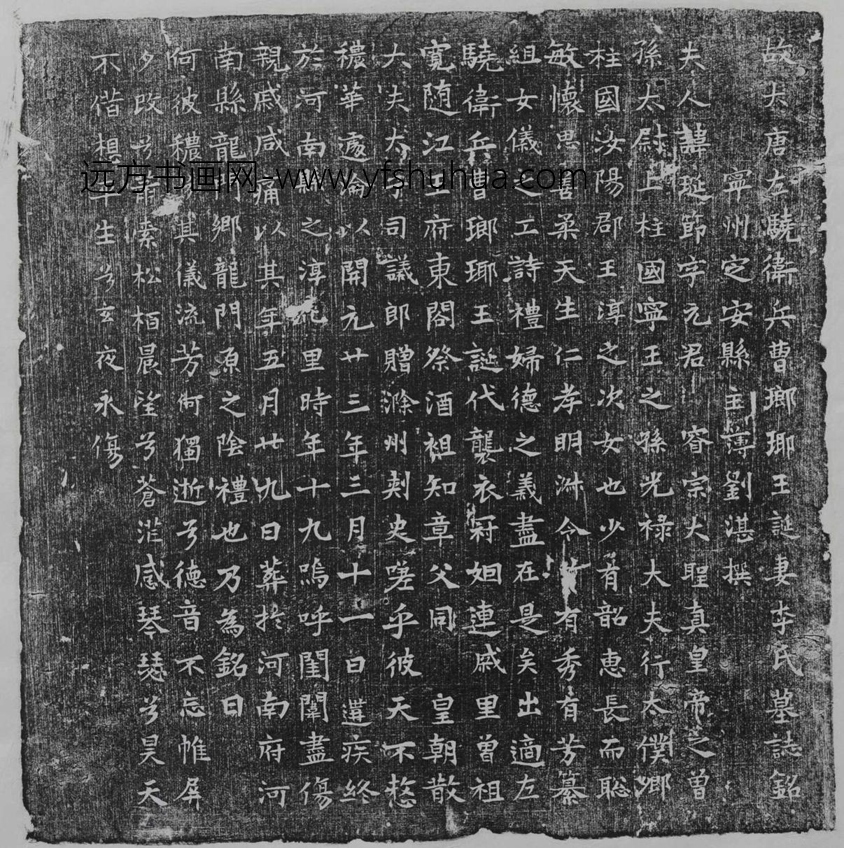 故大唐左驍衛兵曹瑯琊王誕妻李氏墓誌銘
寧州定安縣主簿劉湛撰
夫人諱珽節字元君 睿宗大聖真皇帝之曾
孫太尉上柱國寧王之孫光祿大夫行太僕卿
柱國汝陽郡王淳之次女也少有韶惠長而聡
敏懷思善柔天生仁孝明淑令 有秀有芳纂
組女儀之工詩禮婦德之義盡在是矣出適左
驍衛兵曹瑯琊王誕代襲衣冠姻連戚里曾祖
寬隨江 王府東閤祭酒祖知章父同 皇朝散
大夫太子司議郎贈滁州刺史嗟乎彼天不憗
穠華遽 以開元廿三年三月十一日遘疾終
於河南 之淳 里時年十九嗚呼閨闈盡傷
親戚咸痛以其年五月廿九日葬於河南府河
南縣龍門鄉龍門原之陰禮也乃為銘曰
何彼穠 其儀流芳何獨逝兮德音不忘帷屏
夕改兮 素松栢晨望兮蒼茫感琴瑟兮昊天
不偕想平生兮玄夜永傷
远方书画网-www.yfshuhua.com